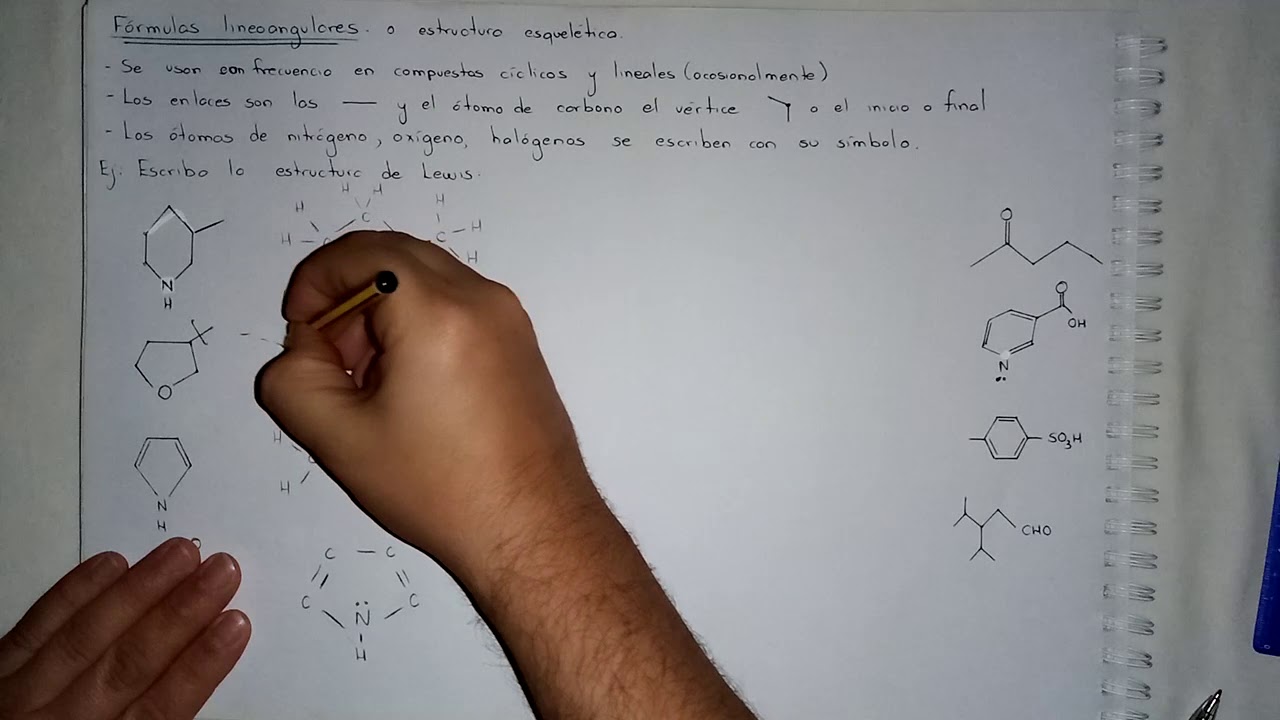 Fórmulas lineoangulares. o estructura esquelética.
- Se usan con frecuencia en compuestos cíclicos y lineales (ocasionalmente)
- Los enlaces son las — y el átomo de carbono el vértice o el inicio o final
- Los átomos de nitrógeno, oxígeno, halógenos se escriben con su símbolo.
Ej: Escriba la estructura de Lewis.
H H
H C H
H C C H
H
N
H
O
O
N
H
H
H
C C
C C
N
H
O
O
OH
N
SO3H
CHO